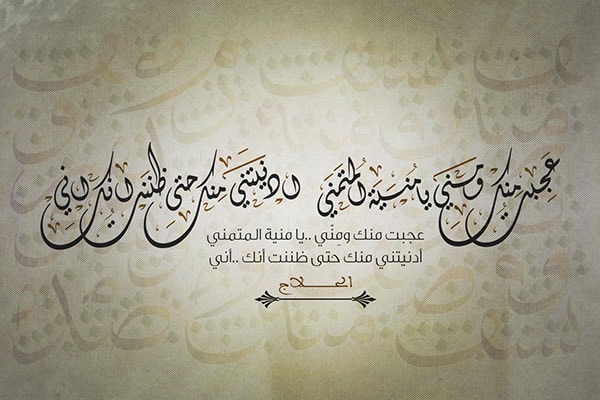 عَجِبت منِك ومِنّي يا مُنية المُتمنّي ادنيتني مِنك حتى ظننت انك اني
عجبت منك ومِنّي ..يا منية المتمني
أدنيتني منك حتى ظننت أنك ..أني
الحلاج